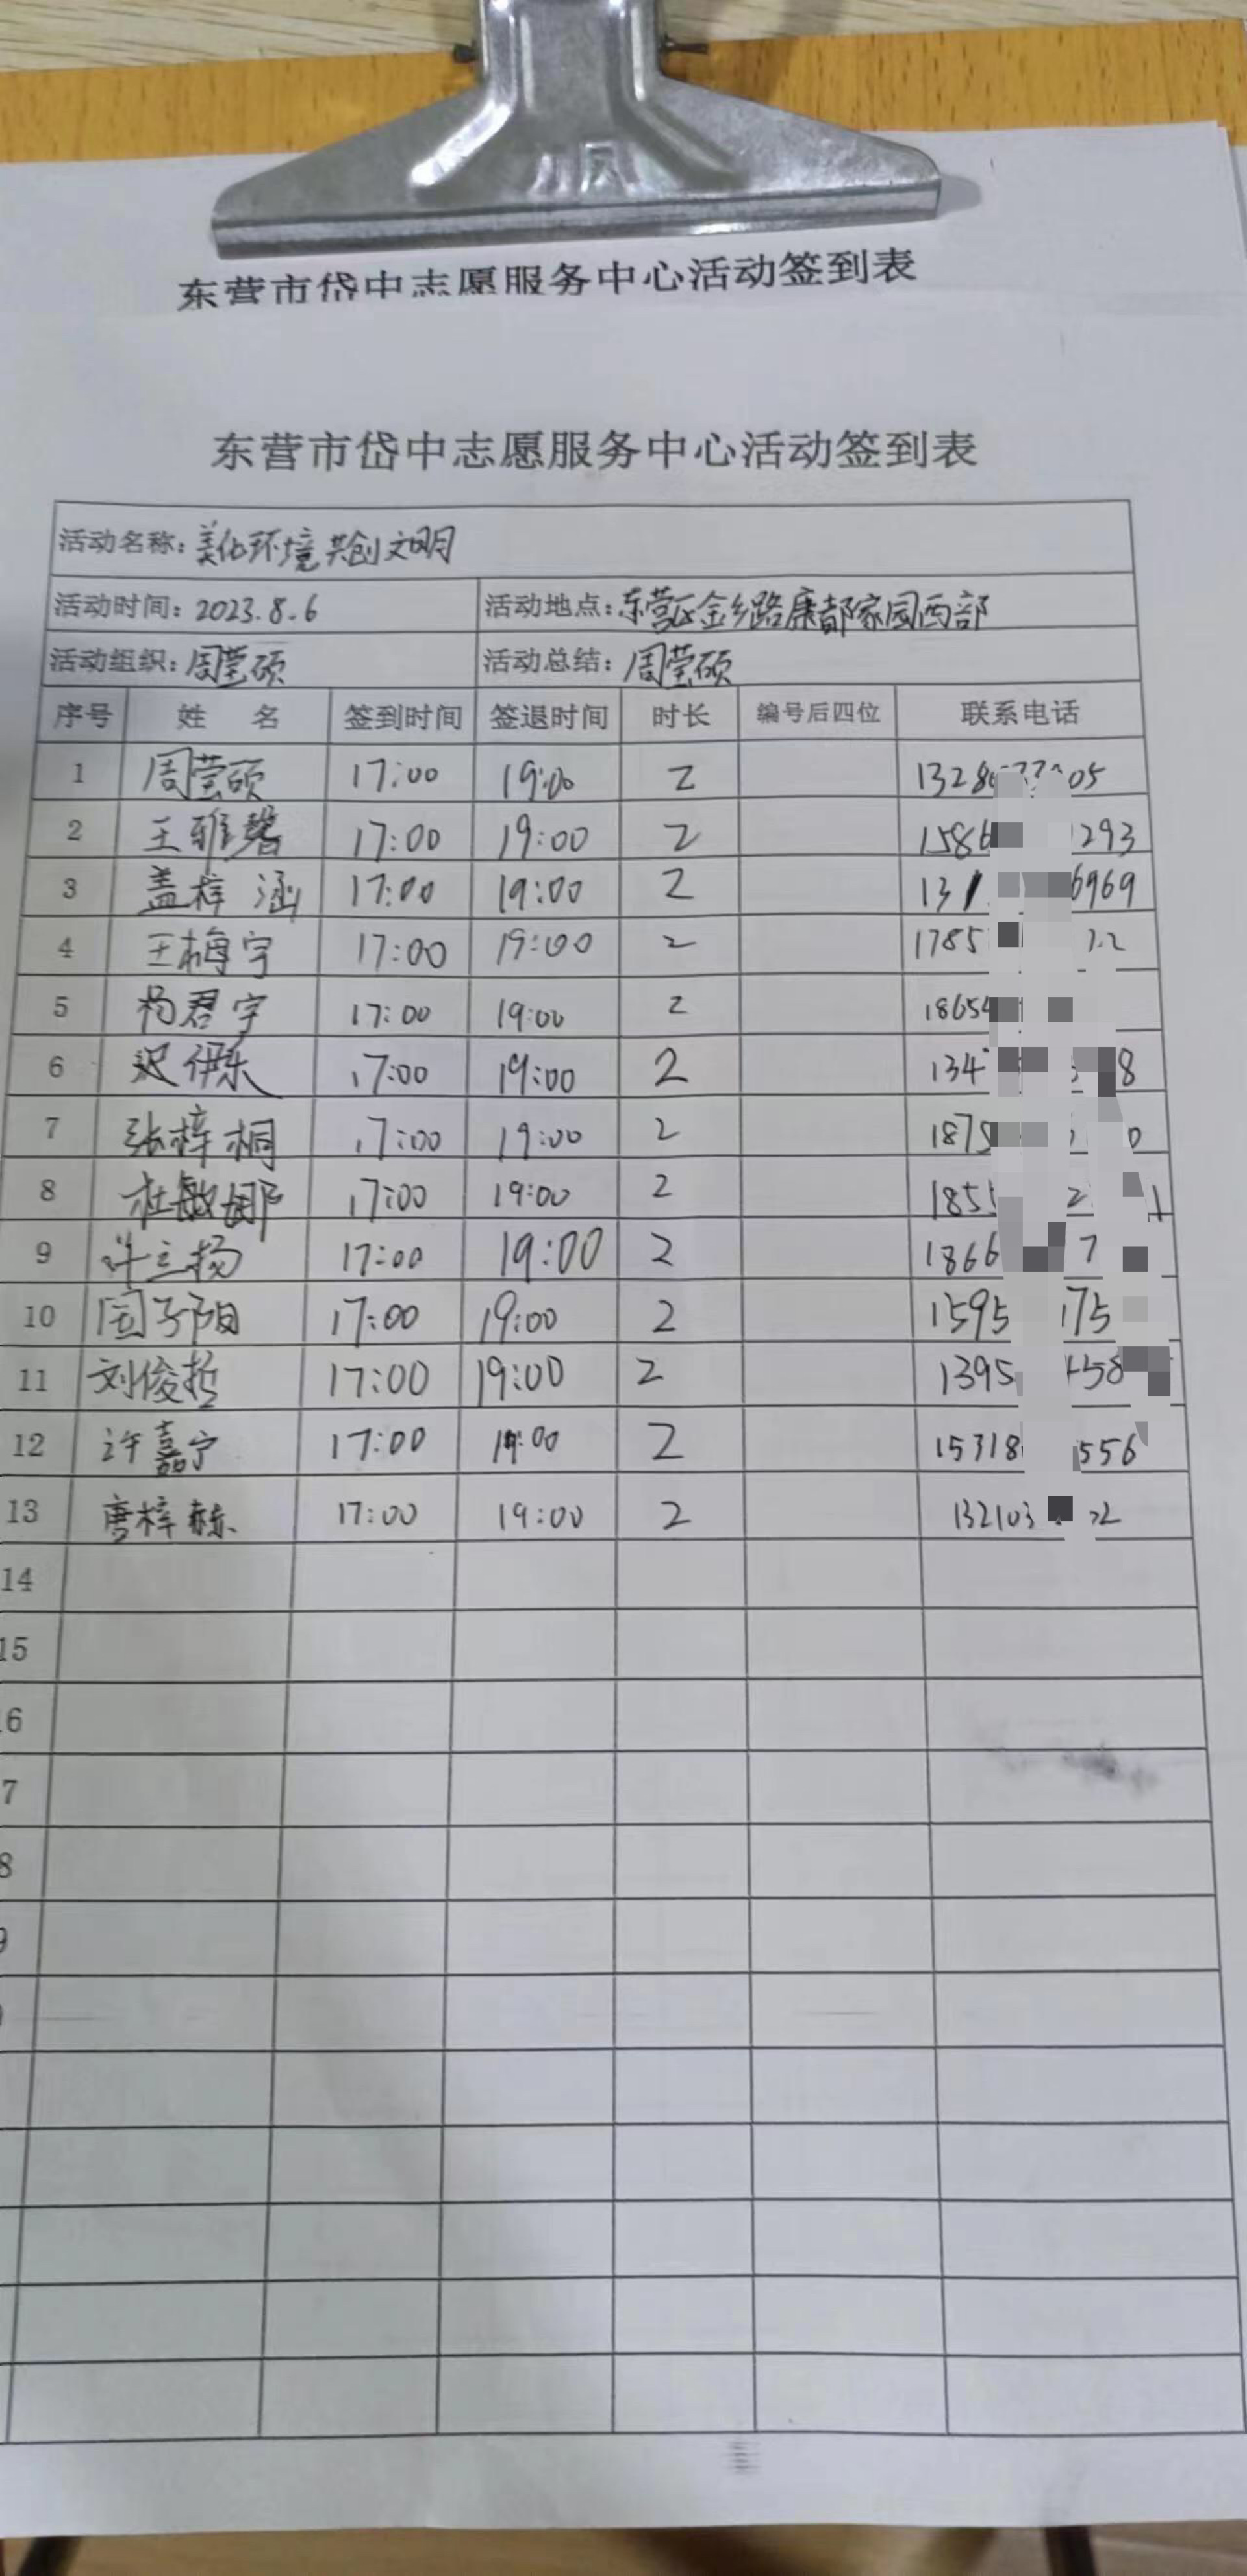 东营市岱中志愿服务中心活动签到表
东营市岱中志愿服务中心活动签到表
活动名称：美化环境 共创文明
活动时间：2023.8.6 活动地点：东营区金乡路康都家园西部
活动组织：周莹硕 活动总结：周莹硕
序号 姓 名 签到时间 签退时间 时长 编号后四位 联系电话
1 周莹硕 17:00 19:00 2 1328 05
2 王雅馨 17:00 19:00 2 1586 293
3 盖梓涵 17:00 19:00 2 13 6969
4 王梅宇 17:00 19:00 2 1785
5 杨君宇 17:00 19:00 2 18654
6 迟伊乐 17:00 19:00 2 134 8
7 张梓桐 17:00 19:00 2 1875 0
8 杜敏娜 17:00 19:00 2 1855 2
9 许立扬 17:00 19:00 2 1866 7
10 国子阳 17:00 19:00 2 1595 175
11 刘俊哲 17:00 19:00 2 1395 58
12 许嘉宁 17:00 19:00 2 15318 556
13 唐梓赫 17:00 19:00 2 132103 2
14
15
6
7
8
9